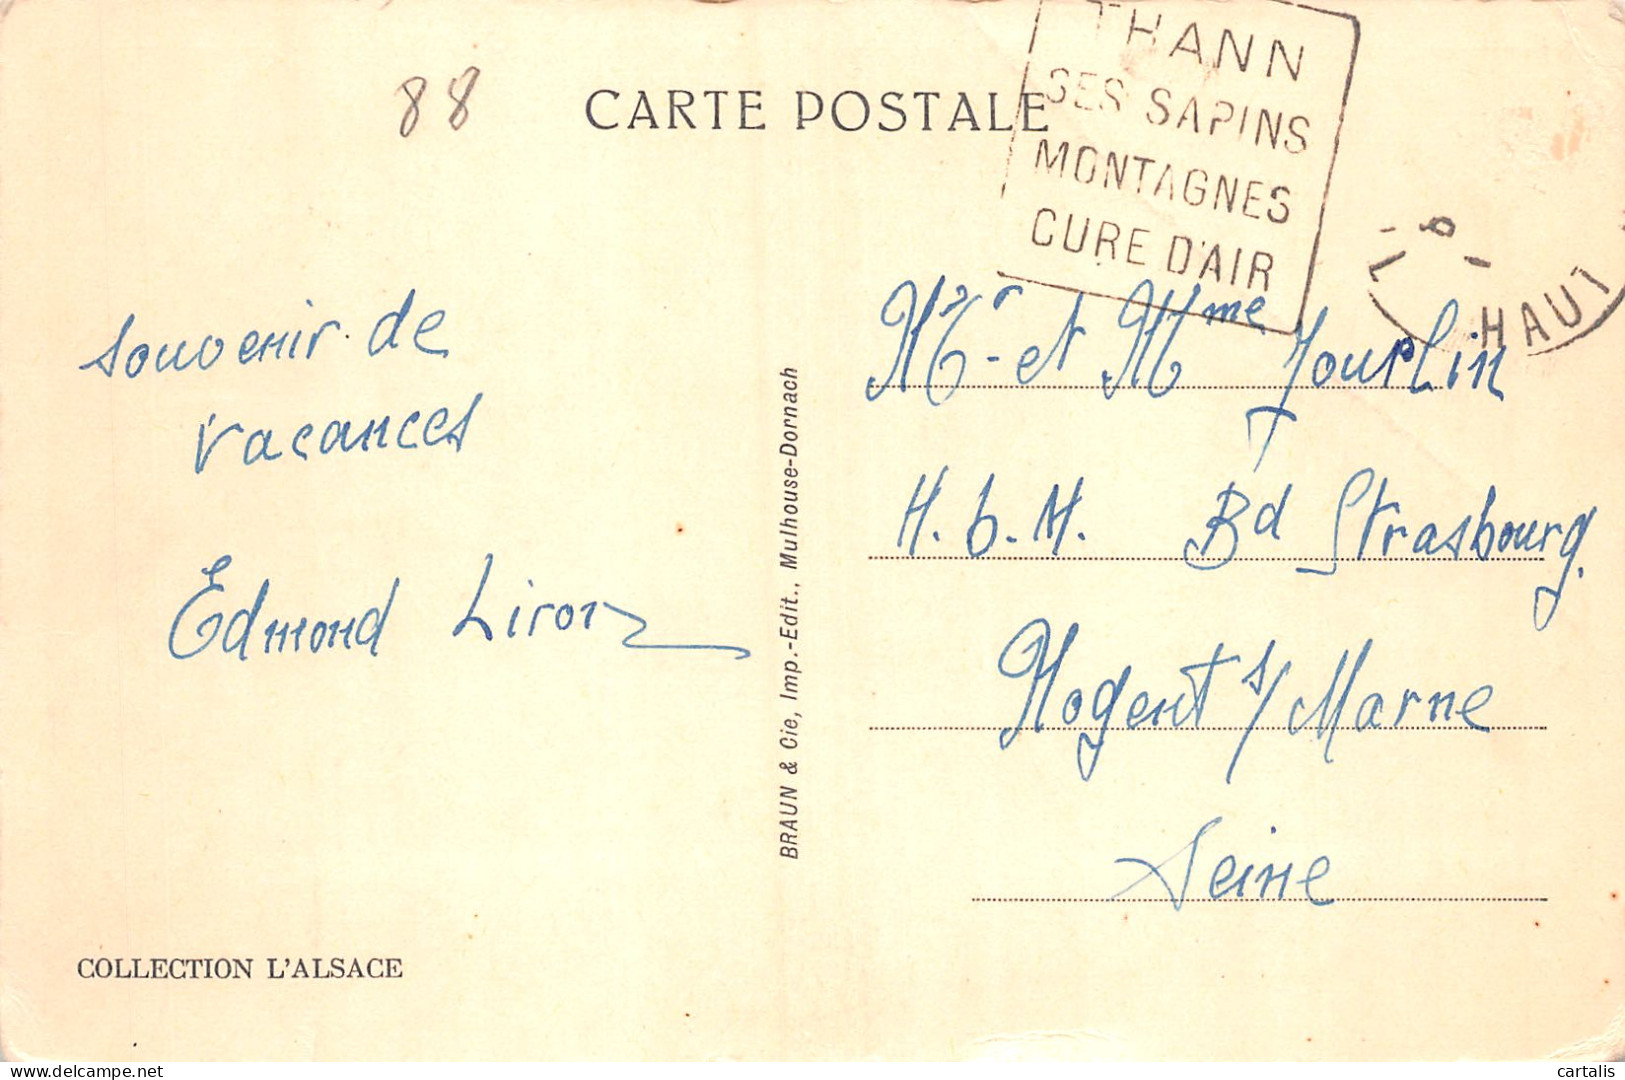 88
CARTE POSTALE
THANN
SES SAPINS
MONTAGNES
CURE D'AIR
HAUT
souvenir de
vacances
Edmond Liron
BRAUN & Cie, Imp.-Edit., Mulhouse-Dornach
Mr et Mme Jourlin
H.b.M. Bd Strasbourg.
Nogent s/ Marne
Seine
COLLECTION L'ALSACE
delcampe.net
cartalis